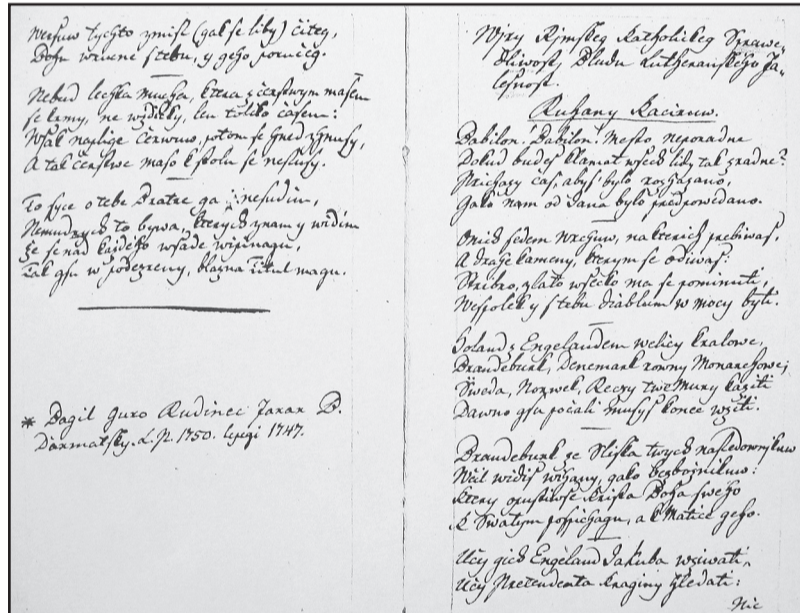 Werssuw tychto zmisl (gak se liby) čiteg,
Bohu wzdawne s tebu, y geho poručeg.
Nebud lechka mucha, ktera z čerstwym masem
se krmy, ne wždicky, len toliko časem:
Wssak naplige čerwuw, potom se hned zhnusy,
A tak čerstwe maso k stolu se neslussy.
To syce o tebe Bratre ga nesudim,
Nemudrych to bywa, kterych znam y widim
že se nad každeho wssade wipinagu,
Tak gsu w podezreny, blazna Titul magu.
* Dagil Guro Rudinec Farar B.
Darmotsky. L. P. 1750. lepegi 1747.
Wiry Rimskeg Katholickeg Sprawe-
dliwost, Bludu Lutheranskeho Fa-
lessnost.
Ruhany Kaciruw.
Babilon! Babilon! Mesto neporadne
Dokud budes klamat wssech lidy tak zradne?
Prichazy čas, abys bylo rozhazano,
Gako nam od Jana bylo predpowedano.
Onich sedem Wrchuw, na kterich prebiwass,
A drahe kameny, kterym se odiwass:
Stribro, zlato wssecko ma se pominuti,
Wespolek y s tebu diablum w mocy byti.
Holand z Engelandem welicy kralowe,
Brandeburk, Denemark rowny Monarchowe;
Sweda, Norwek, Reczy twe Mury kaziti
Dawno gsu počali musys konec wziti.
Brandeburk ze Slizka twych nasledownikuw
Wčil widis wihany, gako bezboznikuw:
Ktery opustiwsse Krista Boha sweho
K Swatym pospichagu, a k Matce geho.
Učy gich Engeland Jakuba wziwati,
Učy Pretendenta Kraginy hledati:
Nic